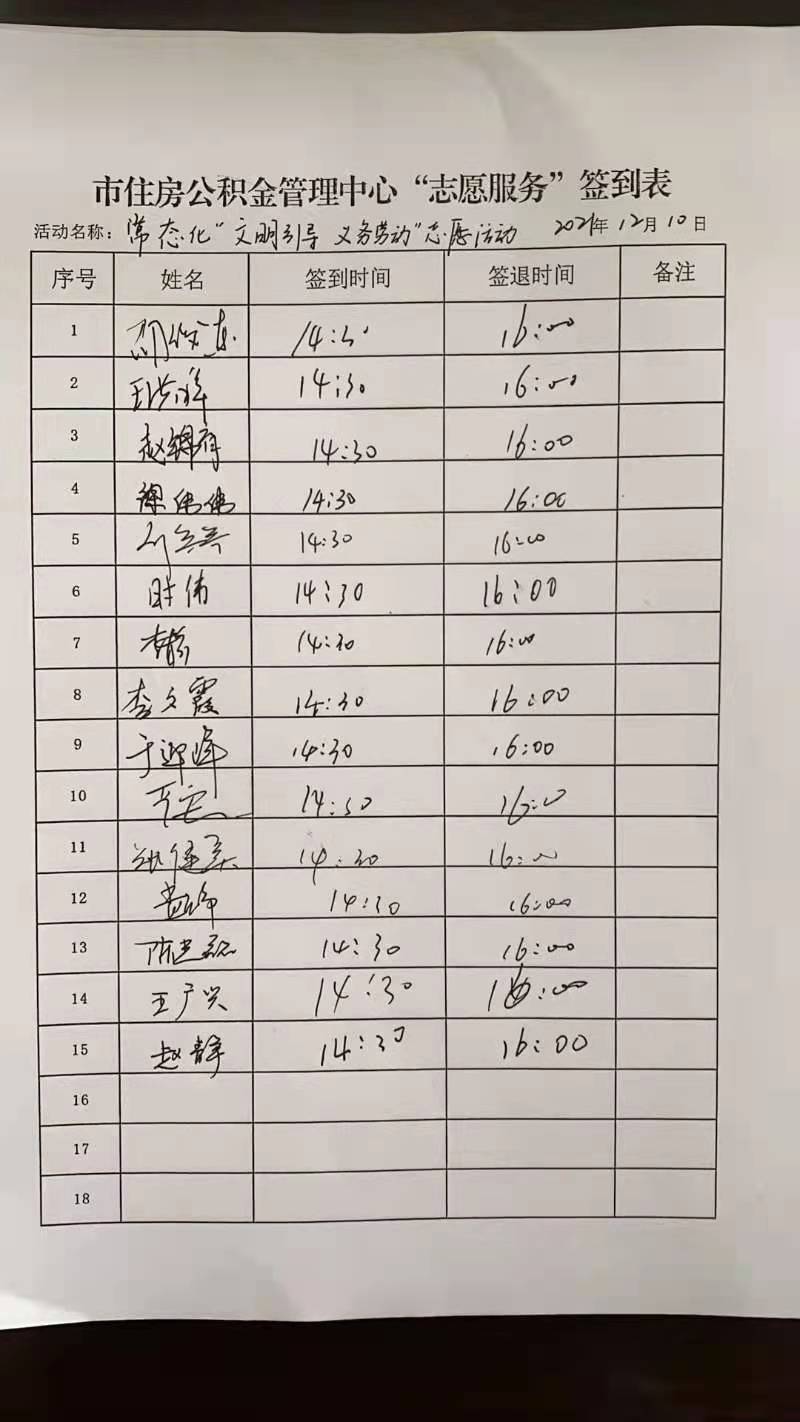 市住房公积金管理中心“志愿服务”签到表
活动名称：常态化“文明引导 义务劳动”志愿活动 2021年12月10日
序号 姓名 签到时间 签退时间 备注
1 14:30 16:00
2 14:30 16:00
3 14:30 16:00
4 徐伟伟 14:30 16:00
5 14:30 16:00
6 时伟 14:30 16:00
7 14:30 16:00
8 李文霞 14:30 16:00
9 于迎峰 14:30 16:00
10 14:30 16:00
11 14:30 16:00
12 14:30 16:00
13 14:30 16:00
14 王广兴 14:30 16:00
15 赵静 14:30 16:00
16
17
18